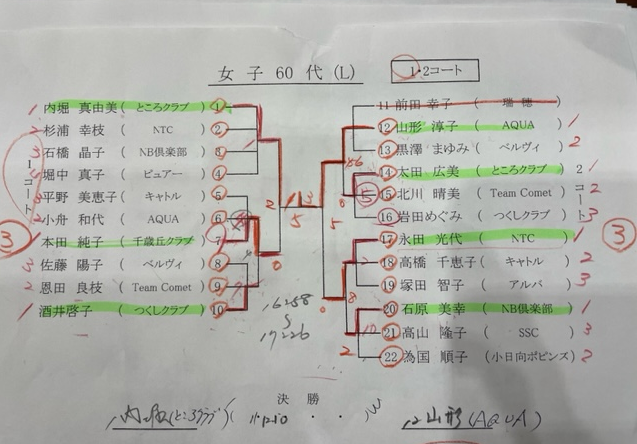 女子 60代 (L)
1・2コート
1コート
2コート
1 内堀 真由美 ( ところクラブ ) 1
2 杉浦 幸枝 ( NTC ) 2
石橋 晶子 ( NB倶楽部 ) 3
堀中 真子 ( ピュアー ) 4
平野 美恵子 ( キャトル ) 5
小舟 和代 ( AQUA ) 6
1 本田 純子 ( 千歳丘クラブ ) 7
3 佐藤 陽子 ( ベルヴィ ) 8
2 恩田 良枝 ( Team Comet ) 9
1 酒井啓子 ( つくしクラブ ) 10
③
11 前田 幸子 ( 瑞穂 )
12 山形 淳子 ( AQUA ) 1
13 黒澤 まゆみ ( ベルヴィ ) 2
14 太田 広美 ( ところクラブ ) 1
15 北川 晴美 ( Team Comet ) 2
16 岩田めぐみ ( つくしクラブ ) 3
17 永田 光代 ( NTC ) 1
18 高橋 千恵子 ( キャトル ) 2
19 塚田 智子 ( アルバ ) 3
20 石原 美幸 ( NB倶楽部 ) 1
21 高山 隆子 ( SSC ) 3
22 為国 順子 ( 小日向ポピンズ ) 2
③
16:58
17:26
決勝
内堀(ところクラブ)
12 山形 (AQUA)